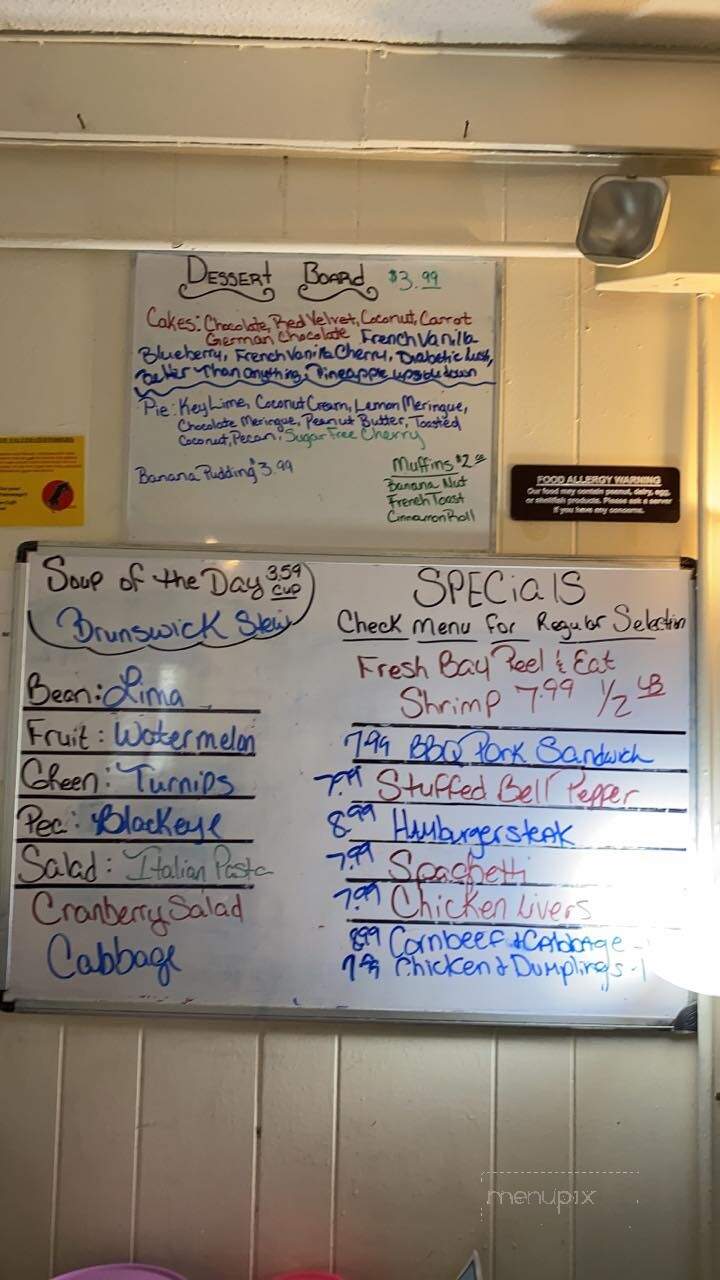 DESSERT BOARD $3.99
Cakes: Chocolate, Red Velvet, Coconut, Carrot
German Chocolate French Vanilla
Blueberry, French Vanilla Cherry, Diabetic Lush,
Better Than anything, Pineapple upside down
Pie: Key Lime, Coconut Cream, Lemon Meringue,
Chocolate Meringue, Peanut Butter, Toasted
Coconut, Pecan, Sugar Free Cherry
Banana Pudding $3.99
Muffins $2
Banana Nut
French Toast
Cinnamon Roll
FOOD ALLERGY WARNING
Our food may contain peanut, dairy, egg,
or shellfish products. Please ask a server
if you have any concerns.
Soup of the Day 3.59 CUP
Brunswick Stew
Bean: Lima
Fruit: Watermelon
Green: Turnips
Pea: Blackeye
Salad: Italian Pasta
Cranberry Salad
Cabbage
SPECIALS
Check Menu For Regular Selection
Fresh Bay Peel & Eat
Shrimp 7.99 1/2 LB
7.99 BBQ Pork Sandwich
7.99 Stuffed Bell Pepper
8.99 Hamburger steak
7.99 Spaghetti
7.99 Chicken Livers
8.99 Cornbeef & Cabbage
Chicken & Dumplings
menupix